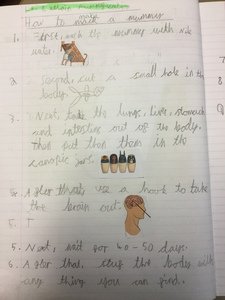 How to make a mummy
make
1. First, wash the mummy with Nile
water.
2. Second, cut a small hole in the
body
3. Next, take the lungs, liver, stomach
and intestine out of the body.
then put them in the
canopic jars.
After use a hook to take
the brain out.
5. Next, wait for 40-50 days.
6. After that, stug the body with
any thing you can find.